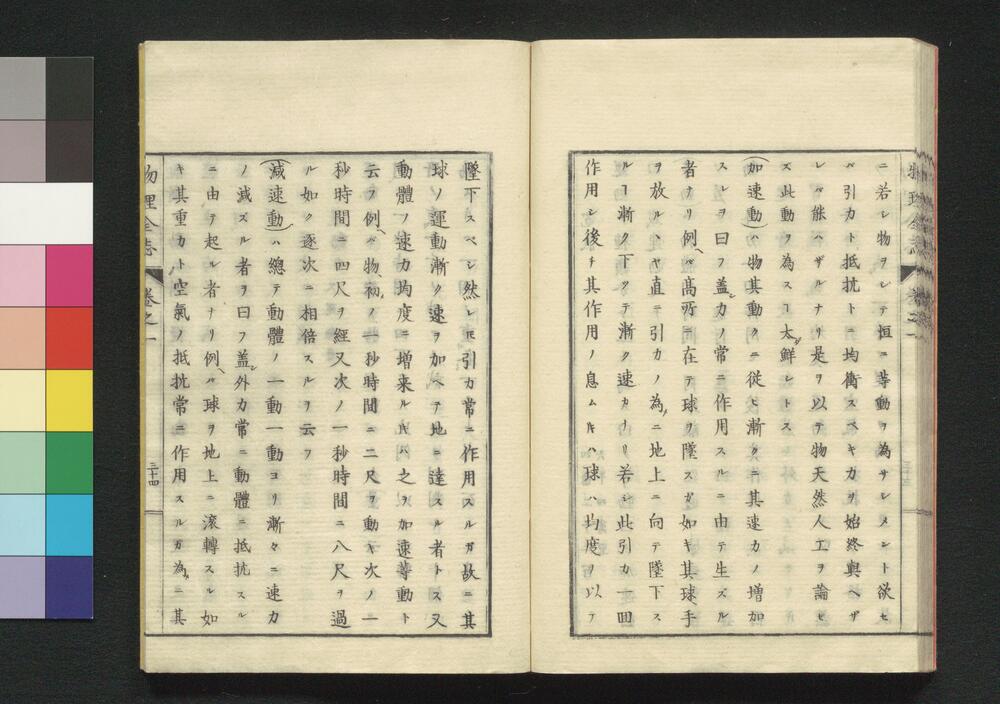 ニ若シ物ヲシテ恒ニ等動ヲ為サシメント欲セ
バ引力ト抵抗トニ均衡スベキ力ヲ始終與ヘザ
レバ能ハザルナリ是ヲ以テ物天然人工ヲ論セ
ズ此動ヲ為スヿ太ダ鮮シトス
(加速動)ハ物其動クニ從ヒ漸クニ其速力ノ増加
スルヲ曰フ盖シ力ノ常ニ作用スルニ由テ生ズル
者ナリ例ヘバ髙所ニ在テ球ヲ墜スガ如キ其球手
ヲ放ルハヤ直ニ引力ノ為メニ地上ニ向テ墜下ス
ルヿ漸ク下クテ漸ク速カナリ若シ此引力一囬
作用シ後チ其作用ノ息ムキハ球ハ均度ヲ以テ
墜下スベシ然レ𪜈引力常ニ作用スルガ故ニ其
球ノ運動漸ク速ヲ加ヘテ地ニ達スル者トス又
動體ノ速力均度ニ増来ルキハ之ヲ加速等動ト
云フ例ヘバ物初メノ一秒時間ニ二尺ヲ動キ次ノ一
秒時間ニ四尺ヲ經又次ノ一秒時間ニ八尺ヲ過
ル如ク逐次ニ相倍スルヲ云フ
(減速動)ハ總テ動體ノ一動一動ヨリ漸々ニ速力
ノ減ズル者ヲ曰フ盖シ外力常ニ動體ニ抵抗スル
ニ由テ起ル者ナリ例ヘバ球ヲ地上ニ滚轉スル如
キ其重力ト空氣ノ抵抗常ニ作用スルガ為メニ其
物理全志
卷之一
三十四